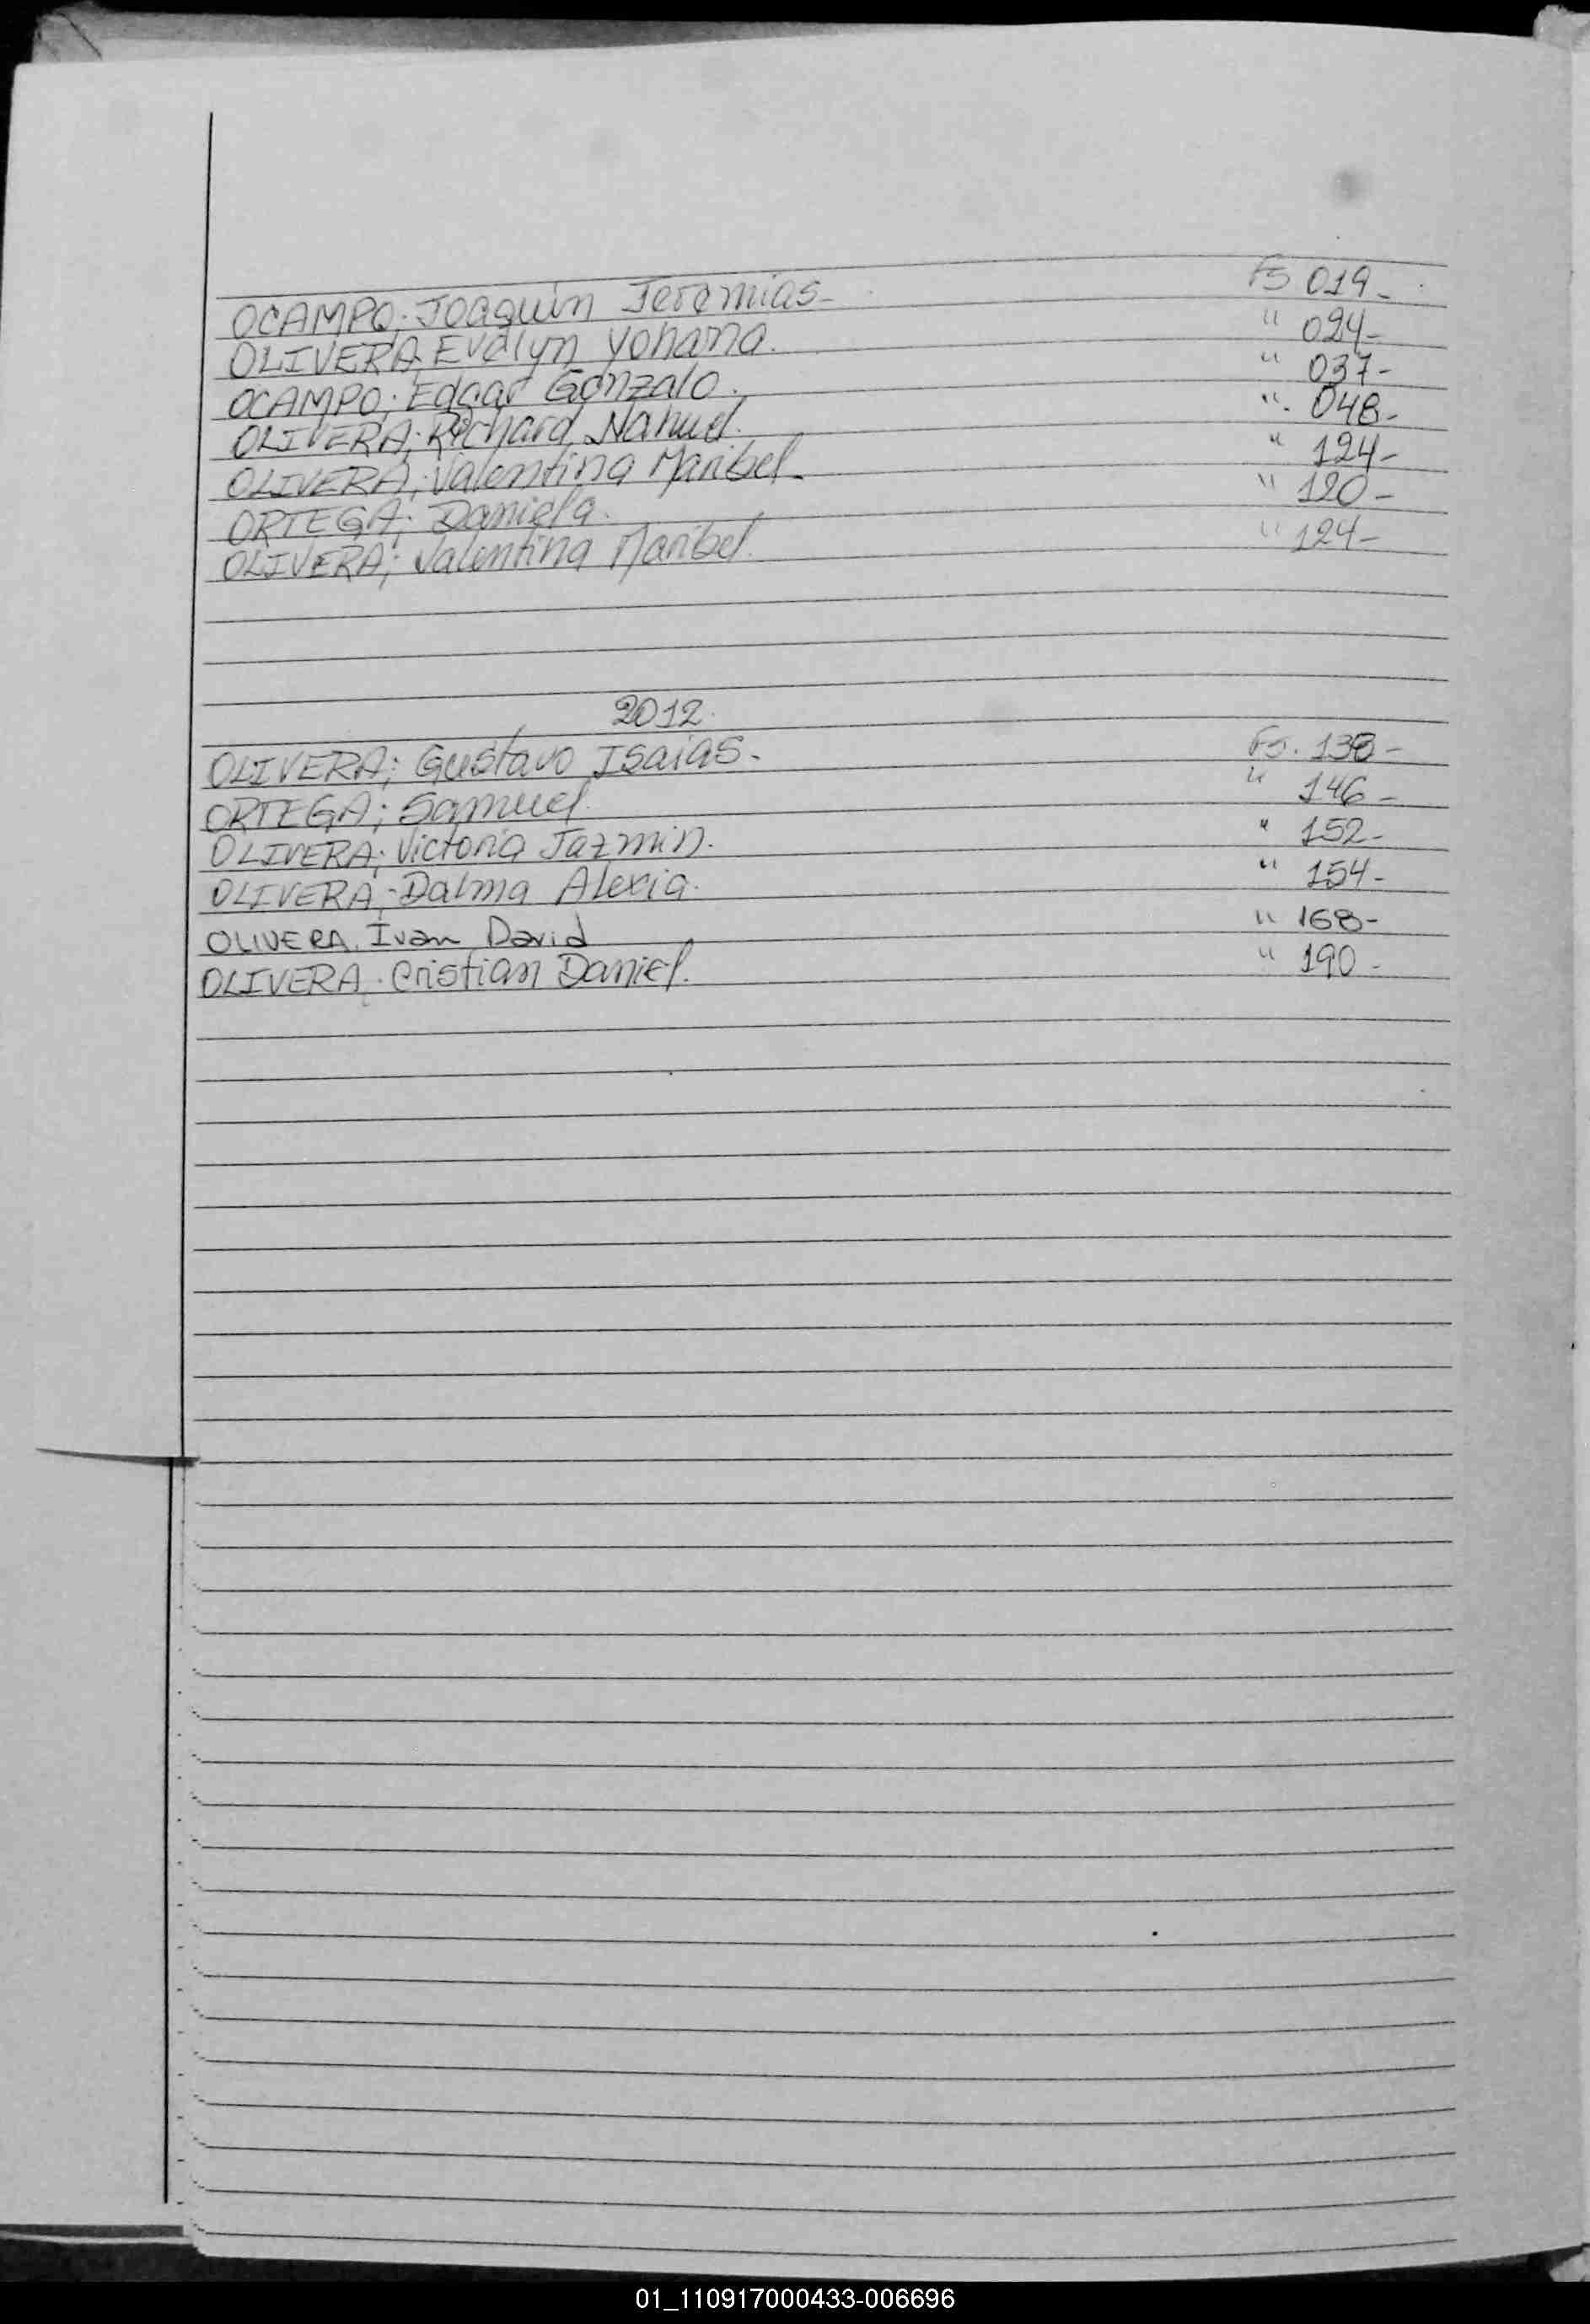 OCAMPO; Joaquin Jeremias- Fs 019-
OLIVERA, Evelyn Yohana. " 024-
OCAMPO; Edgar Gonzalo. " 037-
OLIVERA; Richard Nahuel. ". 048-
OLIVERA; Valentina Maribel- " 124-
ORTEGA; Daniela. " 120-
OLIVERA; Valentina Maribel. " 124-
2012.
OLIVERA; Gustavo Isaias- Fs. 138-
ORTEGA; Samuel. " 146-
OLIVERA; Victoria Jazmin. " 152-
OLIVERA; Dalma Alexia. " 154-
OLIVERA, Ivan David " 168-
OLIVERA, Cristian Daniel. " 190-
01_110917000433-006696